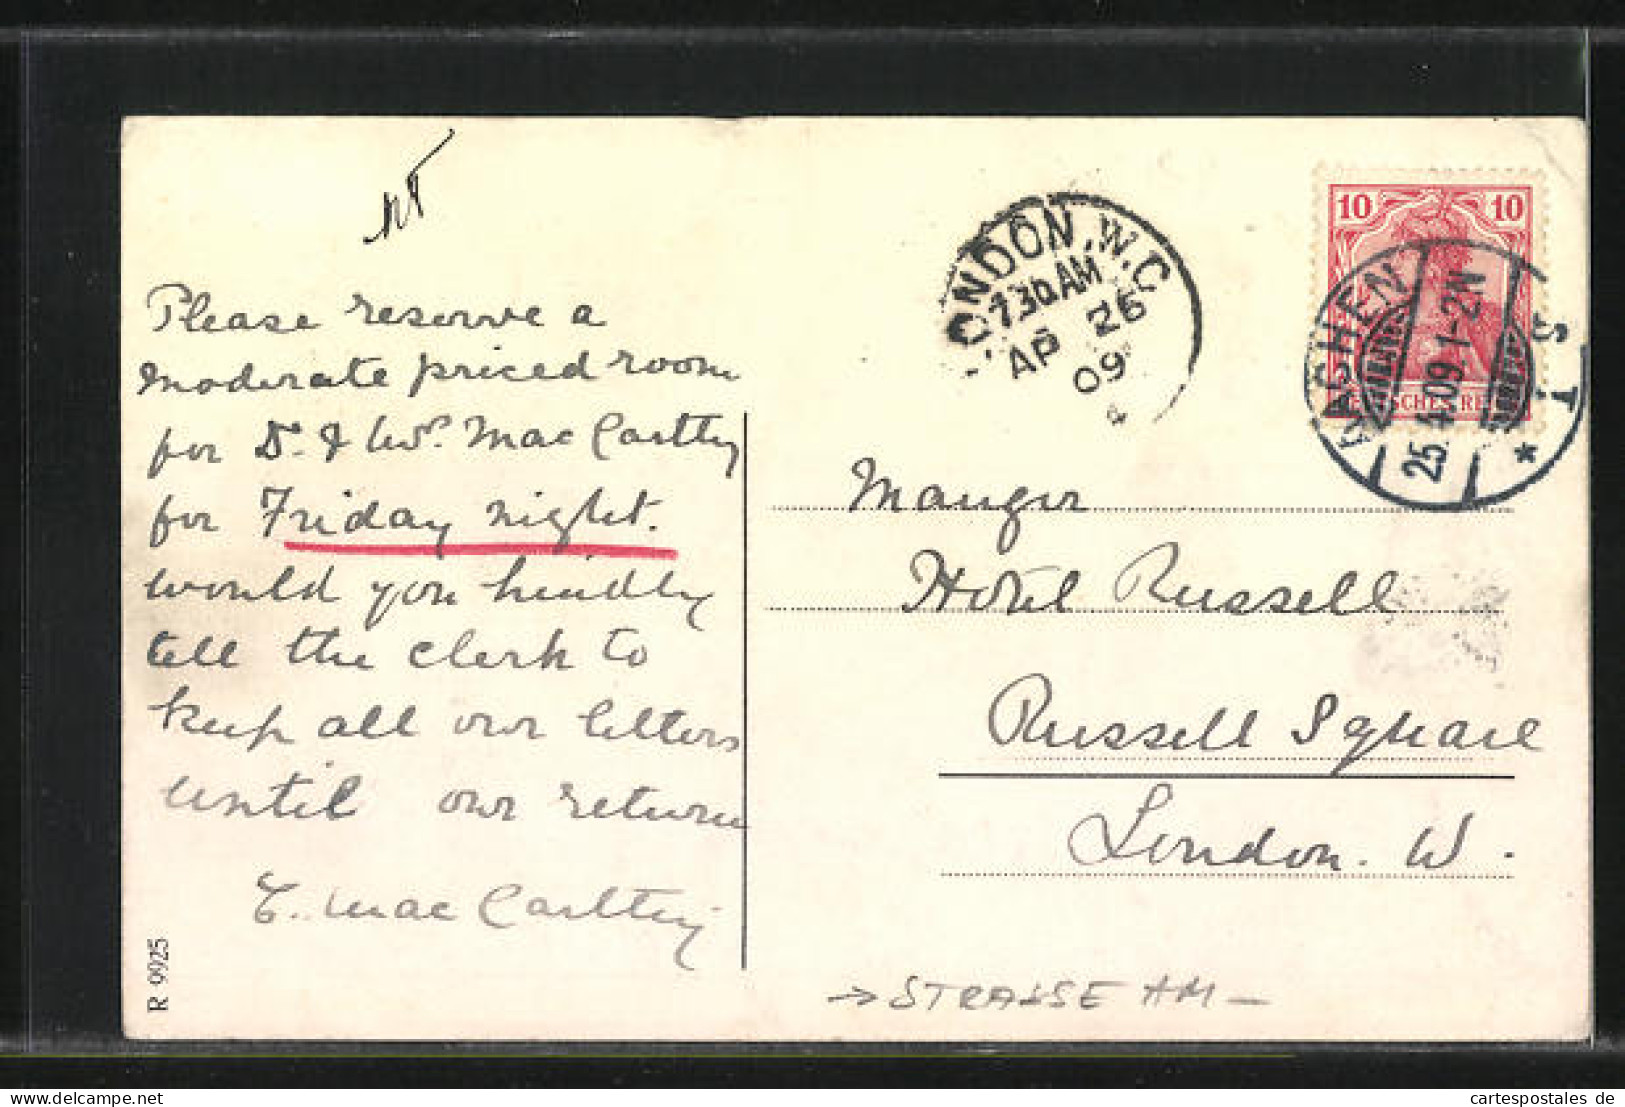 Please reserve a
moderate priced room
for Dr. & Mrs. MacCarthy
for Friday night.
would you kindly
tell the clerk to
keep all our letters
until our return
MacCarthy
R 9925
LONDON.W.C
7.30AM
AP 26
09
10 10
DEUTSCHES REICH
AACHEN
25.4.09.1-2N
*
Manger
Hotel Russell
Russell Square
London. W.
→ STRASSE AM –
www.ansichtskartenversand.com
cartespostales de